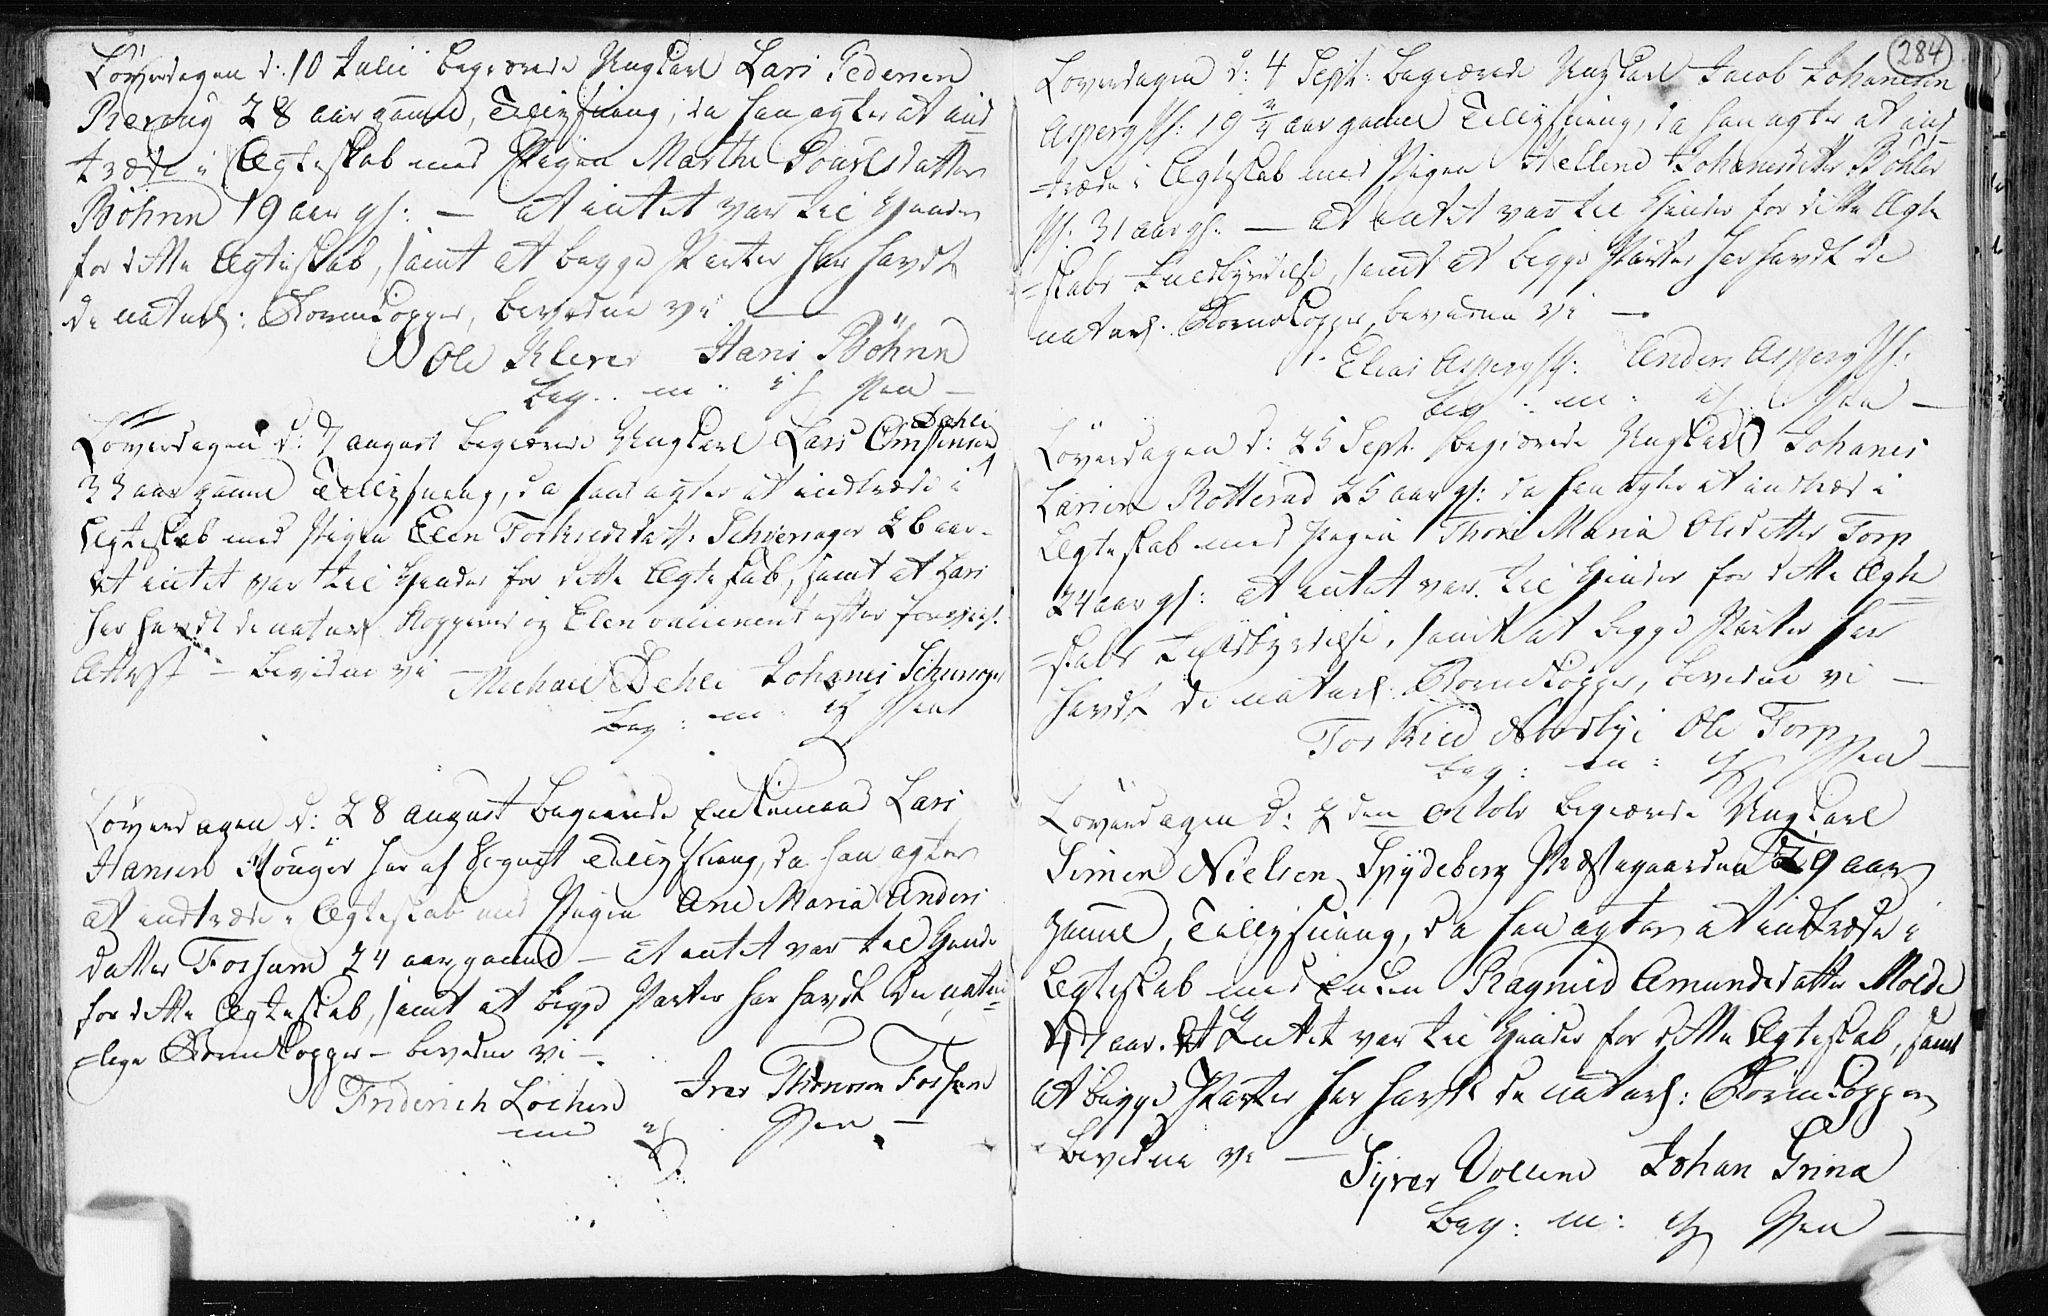 Løverdagen d: 10 Julii begierede Ungkarl Lars Pedersen
28 aar gamel, Tillysning, da han agter at ind
træde i Ægteskab med Pigen Marthe Poulsdatter
Böhren 19 aar gl: — at intet var til Hinder
for dette Ægteskab, samt at begge Parter har havdt
de naturl: Bornekopper, bevidne vi —
Ole Klever Hans Böhren
beg: m: i Pen —
Løverdagen d: 7 august begierede Ungkarl Lars Dahlie
33 aar gamel Tillysning, da han agter at indtræde i
Ægteskab med Pigen Elen Torkildsdatt: Schieruager 26 aar -
at intet var til Hinder for dette Ægteskab, samt at Lars
har havdt de naturl Kopperne og Elen vaccineret efter foreviist
Attest — bevidne vi Michael Dehli Johanes Schieruager
beg: m: i Pen
Løverdagen d: 28 august begierede Enkemand Lars
Hansen har af Sognet Tillysning, da han agter
at indtræde i Ægteskab med Pigen Ane Maria Anders
datter Fossum 24 aar gamel — at intet var til Hinder
for dette Ægteskab, samt at begge Parter har havdt de natur
=lige Bornekopper — bevidne vi —
Friderich Lochen Iver Thoreson Fossum
med i Pen —
284
Loverdagen d: 4 Sept: begierede Ungkarl Jacob Johansen
Asperg 19 aar gamel Tillysning, da han agter at ind
træde i Ægteskab med Pigen Hellene Johanesdatter Böhler
31 aar gl: — at intet var til Hinder for dette Ægte
=skabs Fuldbyrdelse, samt at begge Parter har havdt de
naturl: Bornekopper bevidne vi —
Elias Asperg Anders Asperg
beg: m: i Pen —
Løverdagen d: 25 Sept. begierede Ungkarl Johanes
Larsen Rotterud 25 aar gl: da han agter at indtræde i
Ægteskab med Pigen Thore Maria Olesdatter Torp
24 aar gl: at intet var til Hinder for dette Ægte
=skabs Fuldbyrdelse, samt at begge Parter har
havdt de naturl: Bornekopper, bevidne vi —
Torkild Ole Torp
beg: m: i Pen —
Løverdagen d: 2 den Octobr begierede Ungkarl
Simen Nielsen Spydeberg Præstegaarden 29 aar
gamel, Tillysning, da han agter at indtræde i
Ægteskab med Enken Ragnild Amundsdatter Molde
aar. At Intet var til Hinder for dette Ægteskab, samt
at begge Parter har havdt de naturl: Bornekopper
bevidne vi —
Syver Vollene Johan Grina
beg: m: i Pen —